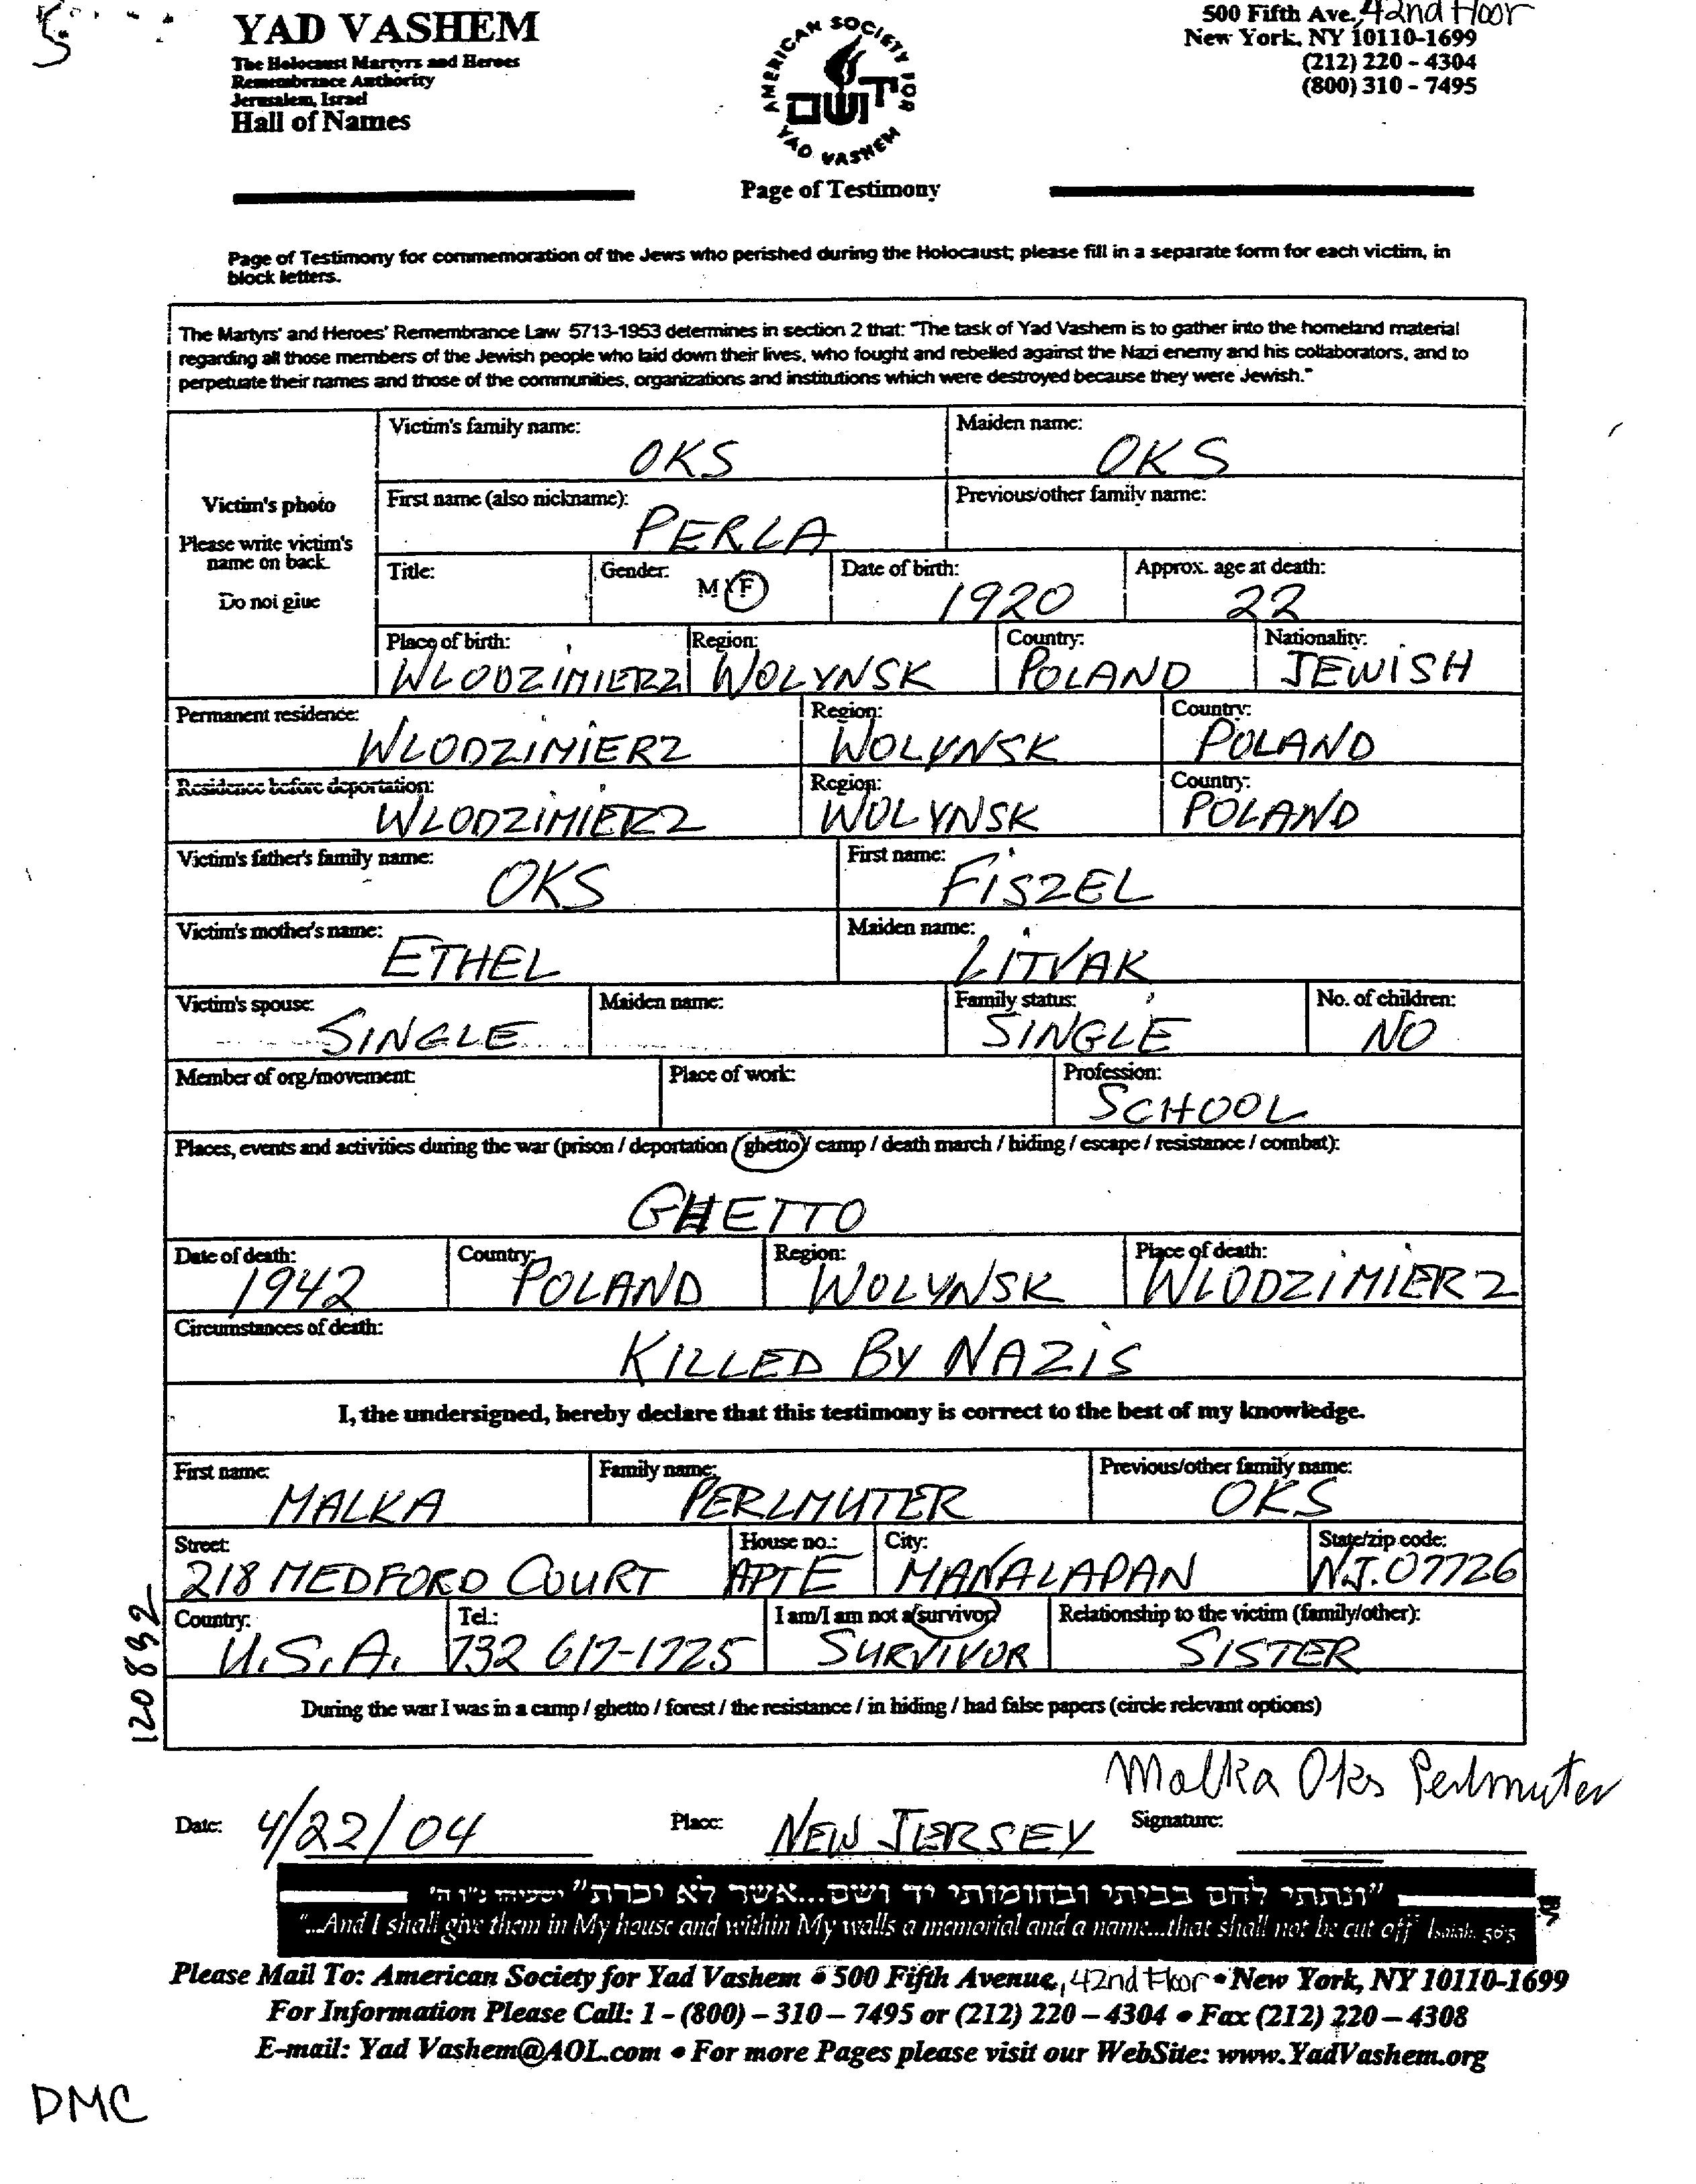 YAD VASHEM
The Holocaust Martyrs and Heroes
Remembrance Authority
Jerusalem, Israel
Hall of Names
AMERICAN SOCIETY FOR
YAD VASHEM
יד ושם
Page of Testimony
500 Fifth Ave., 42nd Floor
New York, NY 10110-1699
(212) 220 - 4304
(800) 310 - 7495
Page of Testimony for commemoration of the Jews who perished during the Holocaust; please fill in a separate form for each victim, in
block letters.
The Martyrs' and Heroes' Remembrance Law 5713-1953 determines in section 2 that: "The task of Yad Vashem is to gather into the homeland material
regarding all those members of the Jewish people who laid down their lives, who fought and rebelled against the Nazi enemy and his collaborators, and to
perpetuate their names and those of the communities, organizations and institutions which were destroyed because they were Jewish."
Victim's photo
Please write victim's
name on back.
Do not glue
Victim's family name: OKS
Maiden name: OKS
First name (also nickname): PERLA
Previous/other family name:
Title:
Gender: M / F
Date of birth: 1920
Approx. age at death: 22
Place of birth: WLODZIMIERZ
Region: WOLYNSK
Country: POLAND
Nationality: JEWISH
Permanent residence: WLODZIMIERZ
Region: WOLYNSK
Country: POLAND
Residence before deportation: WLODZIMIERZ
Region: WOLYNSK
Country: POLAND
Victim's father's family name: OKS
First name: FISZEL
Victim's mother's name: ETHEL
Maiden name: LITVAK
Victim's spouse: SINGLE
Maiden name:
Family status: SINGLE
No. of children: NO
Member of org./movement:
Place of work:
Profession: SCHOOL
Places, events and activities during the war (prison / deportation / ghetto / camp / death march / hiding / escape / resistance / combat):
GHETTO
Date of death: 1942
Country: POLAND
Region: WOLYNSK
Place of death: WLODZIMIERZ
Circumstances of death: KILLED BY NAZIS
I, the undersigned, hereby declare that this testimony is correct to the best of my knowledge.
First name: MALKA
Family name: PERLMUTER
Previous/other family name: OKS
Street: 218 MEDFORD COURT
House no.: APT E
City: MANALAPAN
State/zip code: N.J. 07726
Country: U.S.A.
Tel.: 732 617-1725
I am/I am not a survivor SURVIVOR
Relationship to the victim (family/other): SISTER
During the war I was in a camp / ghetto / forest / the resistance / in hiding / had false papers (circle relevant options)
120892
Date: 4/22/04
Place: NEW JERSEY
Signature: Malka Oks Perlmuter
"ונתתי להם בביתי ובחומותי יד ושם...אשר לא יכרת" ישעיהו נ"ו ה'
"...And I shall give them in My house and within My walls a memorial and a name...that shall not be cut off" Isaiah. 56:5
Please Mail To: American Society for Yad Vashem • 500 Fifth Avenue, 42nd Floor • New York, NY 10110-1699
For Information Please Call: 1 - (800) – 310 – 7495 or (212) 220 – 4304 • Fax (212) 220 – 4308
E-mail: Yad Vashem@AOL.com • For more Pages please visit our WebSite: www.YadVashem.org
DMC